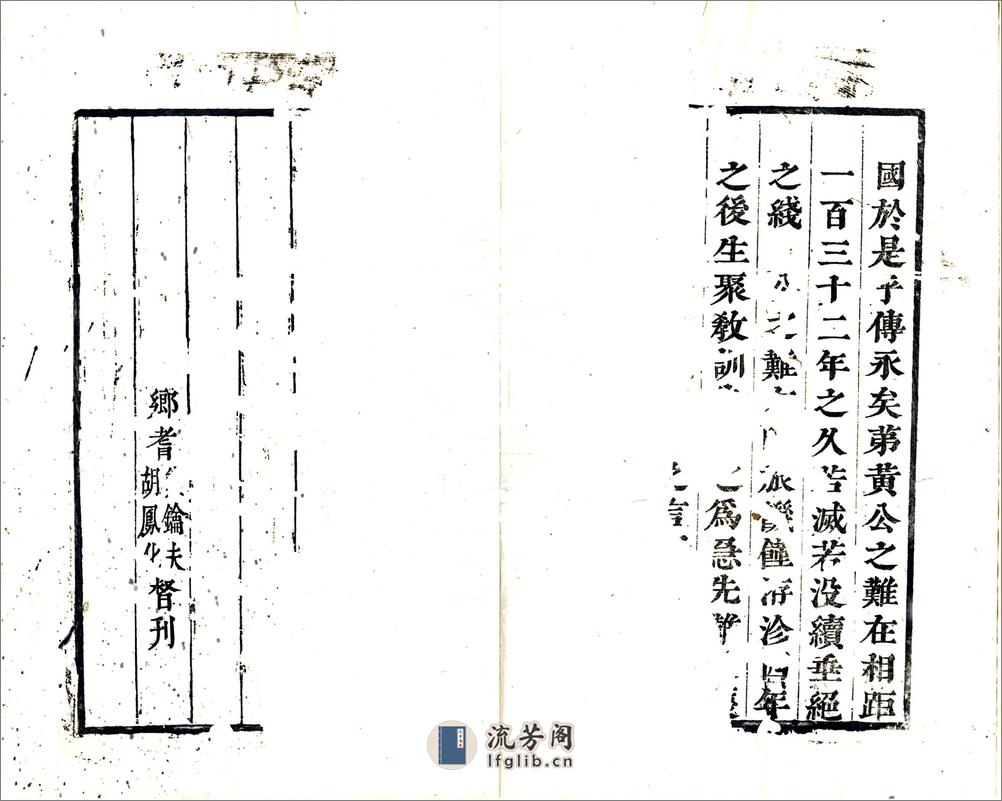 國於是乎傳永矣苐黃公之難在相距
一百三十二年之久若滅若没續垂絕
之綫難饉洊沴年
之後生聚敎訓之爲急先
之言
鄉耆鑰夫胡鳳化督刊
流芳阁
lfglib.cn